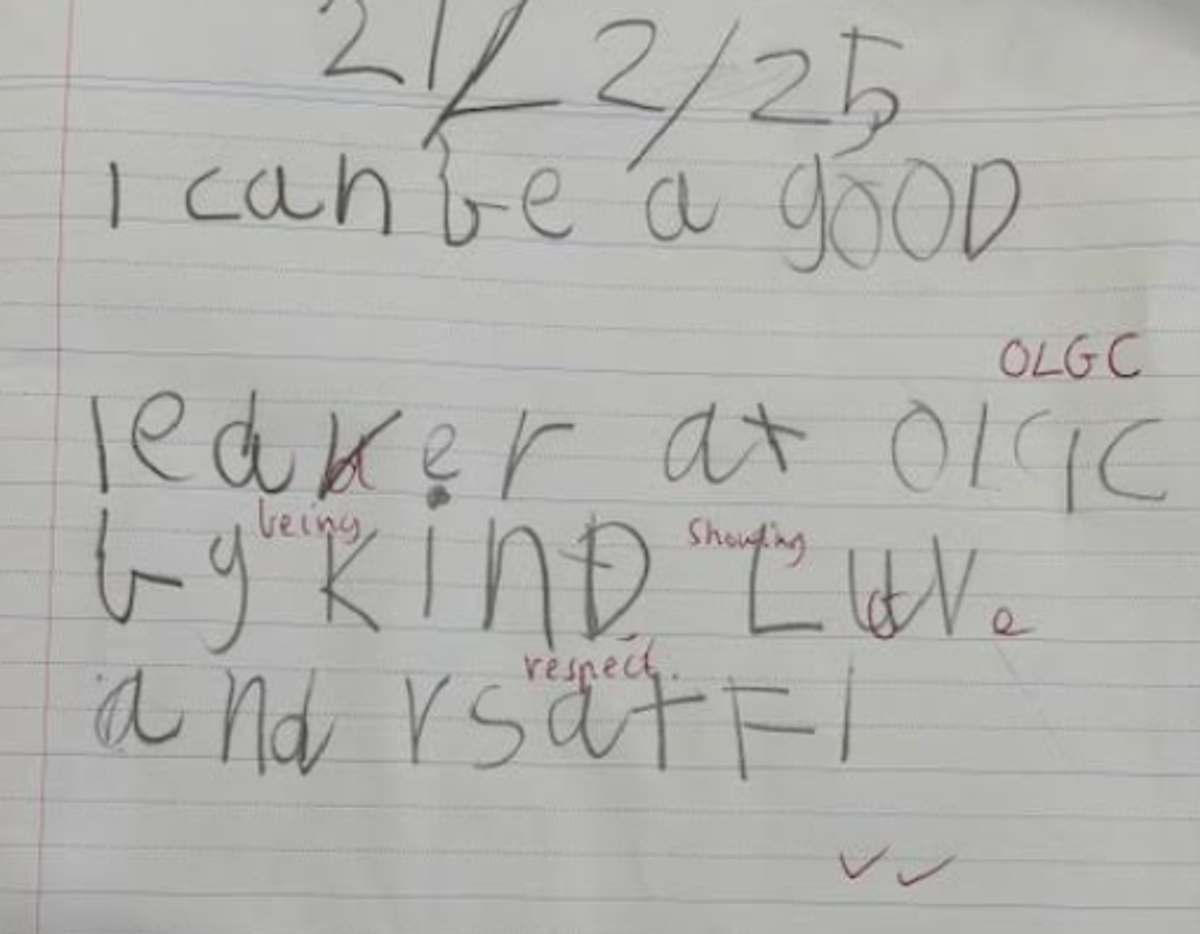 21/2/25
I can be a gooD
OLGC
leader at OlGC
being showing
by KinD Love
respect.
and rsatFl